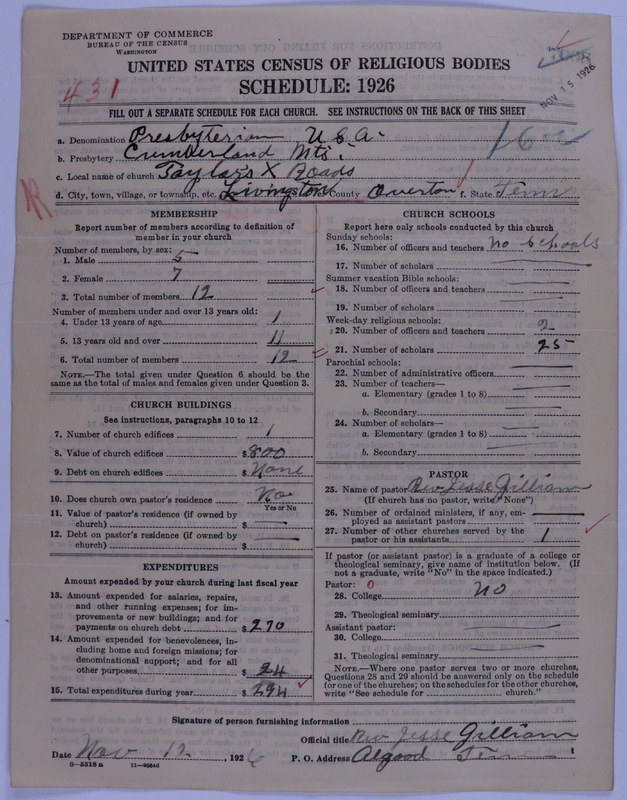 DEPARTMENT OF COMMERCE
BUREAU OF THE CENSUS
WASHINGTON
UNITED STATES CENSUS OF RELIGIOUS BODIES
SCHEDULE: 1926
431
NOV 15 1926
FILL OUT A SEPARATE SCHEDULE FOR EACH CHURCH. SEE INSTRUCTIONS ON THE BACK OF THIS SHEET
a. Denomination Presbyterian U.S.A.
b. Presbytery Cumberland Mts.
c. Local name of church Taylors X Roads
d. City, town, village, or township, etc. Livingston County Overton f. State Tenn
MEMBERSHIP
Report number of members according to definition of
member in your church
Number of members, by sex:
1. Male 5
2. Female 7
3. Total number of members 12
Number of members under and over 13 years old:
4. Under 13 years of age 1
5. 13 years old and over 11
6. Total number of members 12
NOTE.—The total given under Question 6 should be the
same as the total of males and females given under Question 3.
CHURCH BUILDINGS
See instructions, paragraphs 10 to 12
7. Number of church edifices 1
8. Value of church edifices $ 800
9. Debt on church edifices $ None
10. Does church own pastor's residence No
Yes or No
11. Value of pastor's residence (if owned by
church) $
12. Debt on pastor's residence (if owned by
church) $
EXPENDITURES
Amount expended by your church during last fiscal year
13. Amount expended for salaries, repairs,
and other running expenses; for im-
provements or new buildings; and for
payments on church debt $ 270
14. Amount expended for benevolences, in-
cluding home and foreign missions; for
denominational support; and for all
other purposes $ 24
15. Total expenditures during year $ 294
CHURCH SCHOOLS
Report here only schools conducted by this church
Sunday schools:
16. Number of officers and teachers No Schools
17. Number of scholars
Summer vacation Bible schools:
18. Number of officers and teachers
19. Number of scholars
Week-day religious schools:
20. Number of officers and teachers 2
21. Number of scholars 25
Parochial schools:
22. Number of administrative officers
23. Number of teachers—
a. Elementary (grades 1 to 8)
b. Secondary
24. Number of scholars—
a. Elementary (grades 1 to 8)
b. Secondary
PASTOR
25. Name of pastor Rev Jesse Gilliam
(If church has no pastor, write "None")
26. Number of ordained ministers, if any, em-
ployed as assistant pastors
27. Number of other churches served by the
pastor or his assistants 1
If pastor (or assistant pastor) is a graduate of a college or
theological seminary, give name of institution below. (If
not a graduate, write "No" in the space indicated.)
Pastor: 0
28. College No
29. Theological seminary
Assistant pastor:
30. College
31. Theological seminary
NOTE.—Where one pastor serves two or more churches,
Questions 28 and 29 should be answered only on the schedule
for one of the churches; on the schedules for the other churches,
write "See schedule for church."
Signature of person furnishing information
Official title Rev Jesse Gilliam
Date Nov 12, 1926 P. O. Address Algood Tenn
8—5518 a